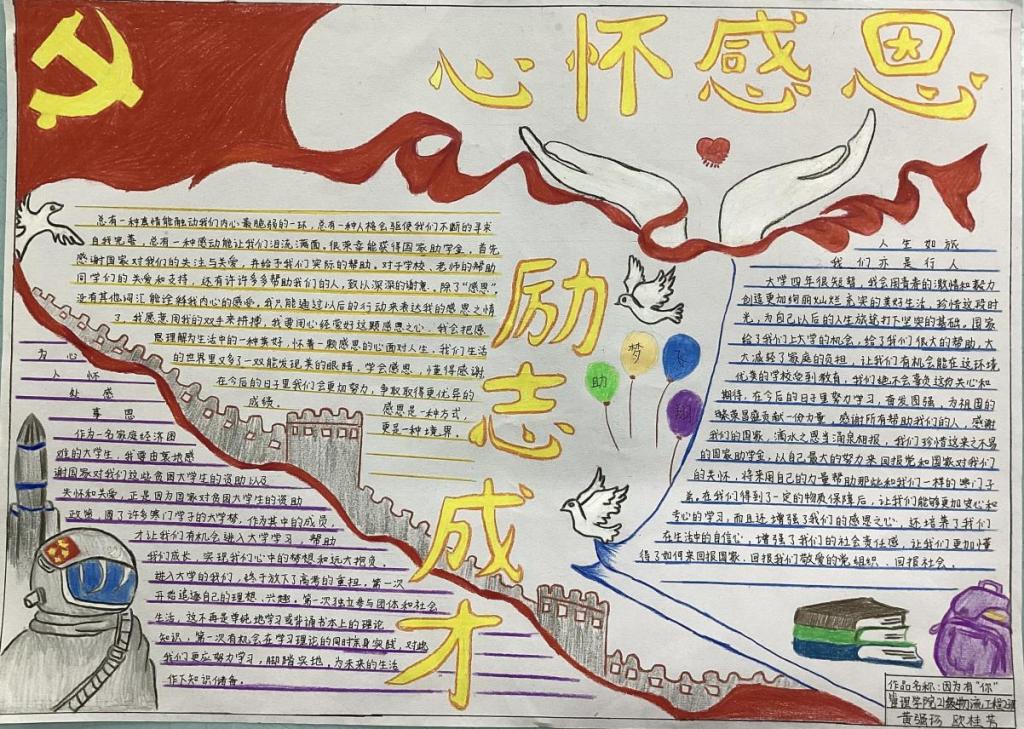 心怀感恩
励志成才
总有一种真情能触动我们内心最脆弱的一环,总有一种人格会驱使我们不断的寻求
自我完善,总有一种感动能让我们泪流满面。很荣幸能获得国家助学金,首先
感谢国家对我们的关注与关爱,并给予我们实际的帮助。对于学校、老师的帮助
同学们的关爱和支持,还有许许多多帮助我们的人,致以深深的谢意,除了“感恩”,
没有其他词汇能诠释我内心的感受,我只能通过以后的行动来表达我的感恩之情
了,我愿意用我的双手来拼搏,我要用心经营好这颗感恩之心。我会把感
恩理解为生活中的一种美好,怀着一颗感恩的心面对人生,我们生活
的世界里又多了一双能发现美的眼睛,学会感恩,懂得感谢
在今后的日子里我们会更加努力,争取取得更优异的
成绩。
感恩是一种方式,
更是一种境界。
助
梦
飞
翔
为心
人怀
处感
事恩
作为一名家庭经济困
难的大学生,我要由衷地感
谢国家对我们这些贫困大学生的资助以及
关怀和关爱,正是因为国家对贫困大学生的资助
政策,圆了许多寒门学子的大学梦,作为其中的成员,
才让我们有机会进入大学学习,帮助
我们成长,实现我们心中的梦想和远大抱负。
进入大学的我们,终于放下了高考的重担,第一次
开始追逐自己的理想、兴趣。第一次独立参与团体和社会
生活,这不再是单纯地学习或背诵书本上的理论
知识,第一次有机会在学习理论的同时亲身实践,对此
我们更应努力学习,脚踏实地,为未来的生活
作下知识储备。
人生如旅
我们亦是行人
大学四年很短暂,我会用青春的激情和毅力
创造更加绚丽灿烂充实的美好生活,珍惜这段时
光,为自己以后的人生旅途打下坚实的基础。国家
给了我们上大学的机会,给了我们很大的帮助,大
大减轻了家庭的负担,让我们有机会能在这环境
优美的学校受到教育,我们绝不会辜负这份关心和
期待,在今后的日子里努力学习,奋发图强,为祖国的
繁荣昌盛贡献一份力量。感谢所有帮助我们的人,感谢
我们的国家,滴水之恩当涌泉相报,我们珍惜这来之不易
的国家助学金,以自己最大的努力来回报党和国家对我们
的关怀,将来用自己的力量帮助那些和我们一样的寒门子
弟,在我们得到了一定的物质保障后,让我们能够更加安心和
专心的学习,而且还增强了我们的感恩之心,还培养了我们
在生活中的自信心,增强了我们的社会责任感,让我们更加懂
得了如何来回报国家,回报我们敬爱的党组织、回报社会。
作品名称:因为有“你”
管理学院21级物流工程2班
黄强 欧桂芳